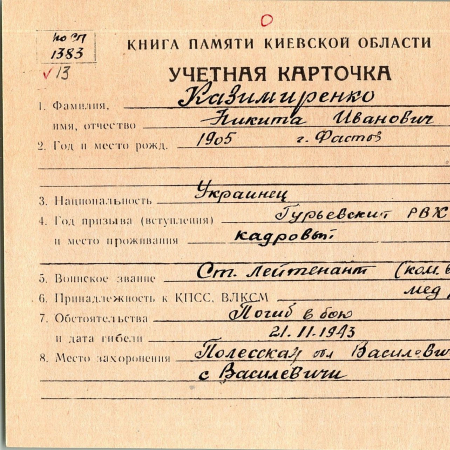 О
по СП
1383
v 13
КНИГА ПАМЯТИ КИЕВСКОЙ ОБЛАСТИ
УЧЕТНАЯ КАРТОЧКА
1. Фамилия, Казимиренко
имя, отчество Никита Иванович
2. Год и место рожд. 1905 г. Фастов
3. Национальность Украинец
4. Год призыва (вступления) Гурьевский РВК
и место проживания кадровый
5. Воинское звание Ст. лейтенант (ком. в
6. Принадлежность к КПСС, ВЛКСМ мед
7. Обстоятельства Погиб в бою
и дата гибели 21.11.1943
8. Место захоронения Полесская обл Василеви
с Василевичи